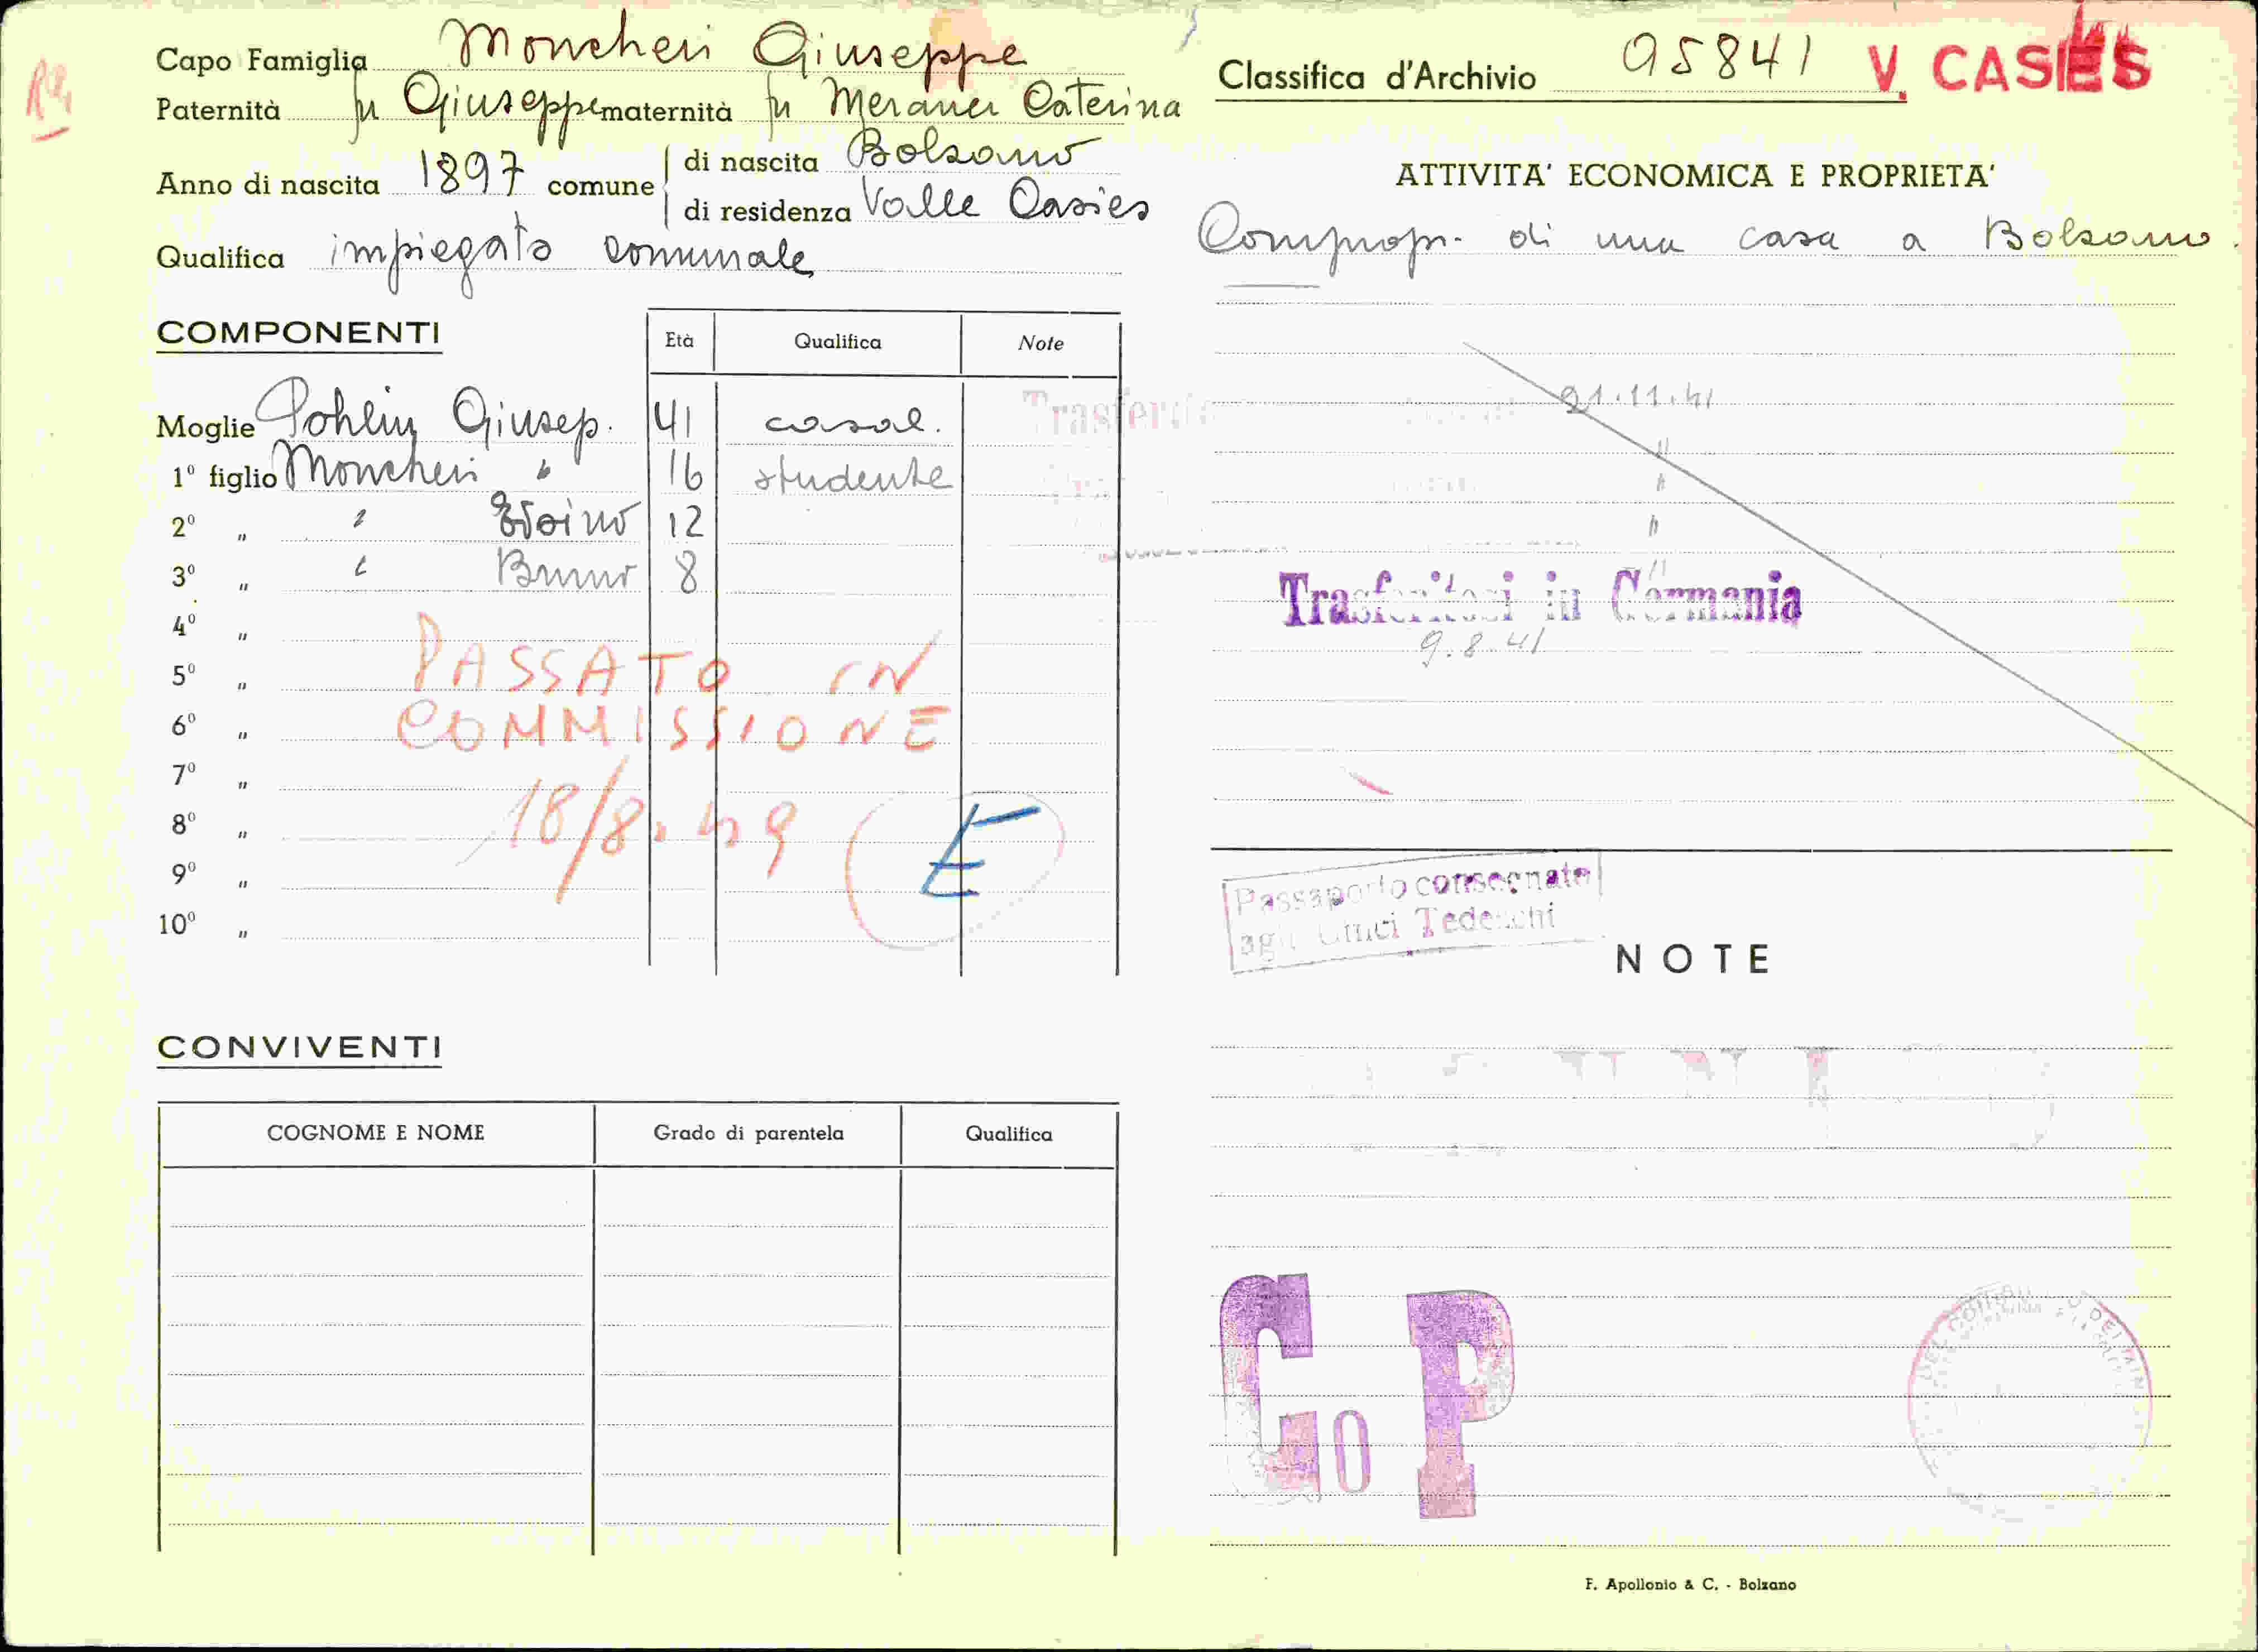 Capo Famiglia Moncheri Giuseppe
Paternità fu Giuseppe maternità fu Meraner Caterina
Anno di nascita 1897 comune di nascita Bolzano
di residenza Valle Casies
Qualifica impiegato comunale
COMPONENTI Età Qualifica Note
Moglie Giusep. 41 casal.
1º figlio Moncheri " 16 studente
2º " " 12
3º " " Bruno 8
4º "
5º "
6º "
7º "
8º "
9º "
10º "
PASSATO IN
COMMISSIONE
18/8.49
E
CONVIVENTI
COGNOME E NOME Grado di parentela Qualifica
Classifica d'Archivio 95841 V. CASIES
ATTIVITA' ECONOMICA E PROPRIETA'
Comprop. di una casa a Bolzano.
21.11.41
Trasferitosi in Germania
9.8.41
Passaporto consegnato
agli Uffici Tedeschi
NOTE
Go P
F. Apollonio & C. - Bolzano